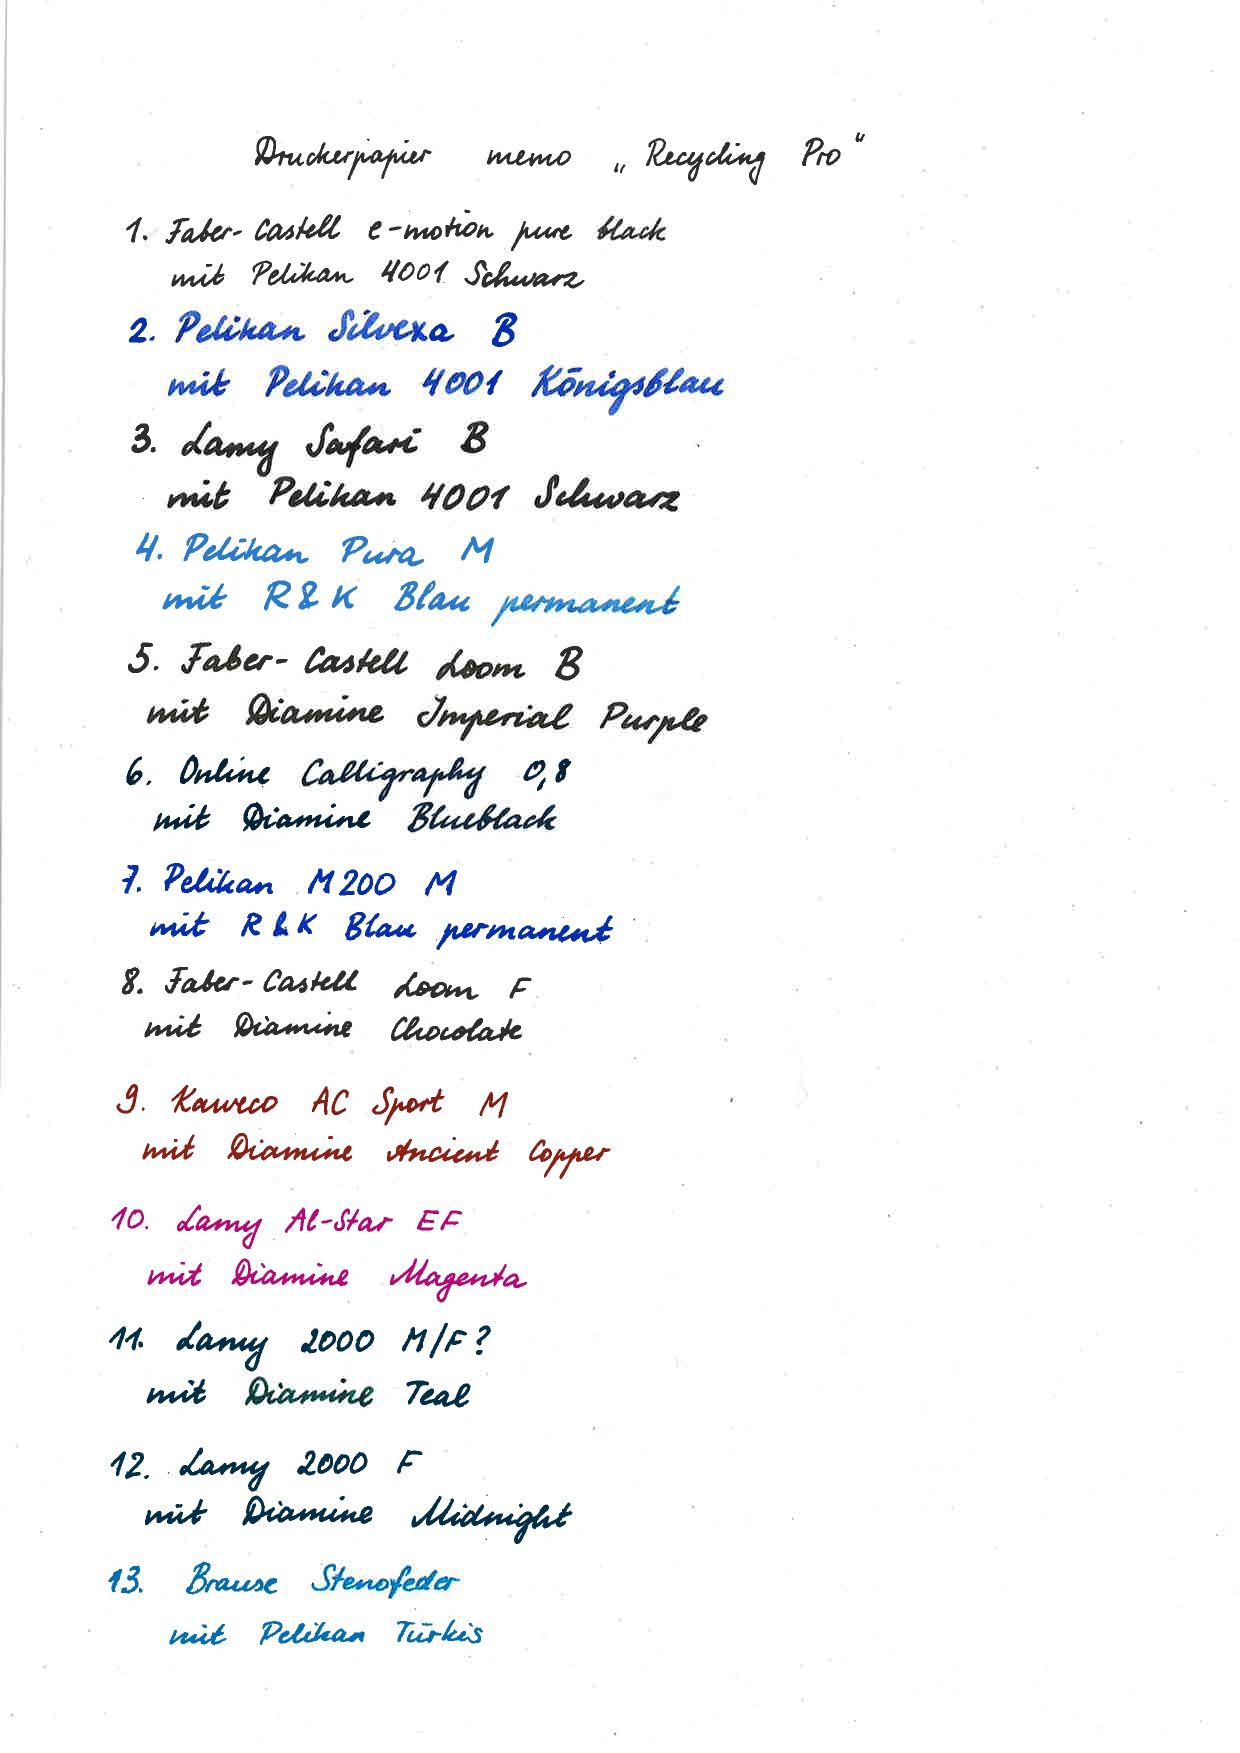 Druckerpapier memo „Recycling Pro“
1. Faber-Castell e-motion pure black
mit Pelikan 4001 Schwarz
2. Pelikan Silvexa B
mit Pelikan 4001 Königsblau
3. Lamy Safari B
mit Pelikan 4001 Schwarz
4. Pelikan Pura M
mit R&K Blau permanent
5. Faber-Castell Loom B
mit Diamine Imperial Purple
6. Online Calligraphy 0,8
mit Diamine Blueblack
7. Pelikan M200 M
mit R&K Blau permanent
8. Faber-Castell Loom F
mit Diamine Chocolate
9. Kaweco AC Sport M
mit Diamine Ancient Copper
10. Lamy Al-Star EF
mit Diamine Magenta
11. Lamy 2000 M/F?
mit Diamine Teal
12. Lamy 2000 F
mit Diamine Midnight
13. Brause Stenofeder
mit Pelikan Türkis